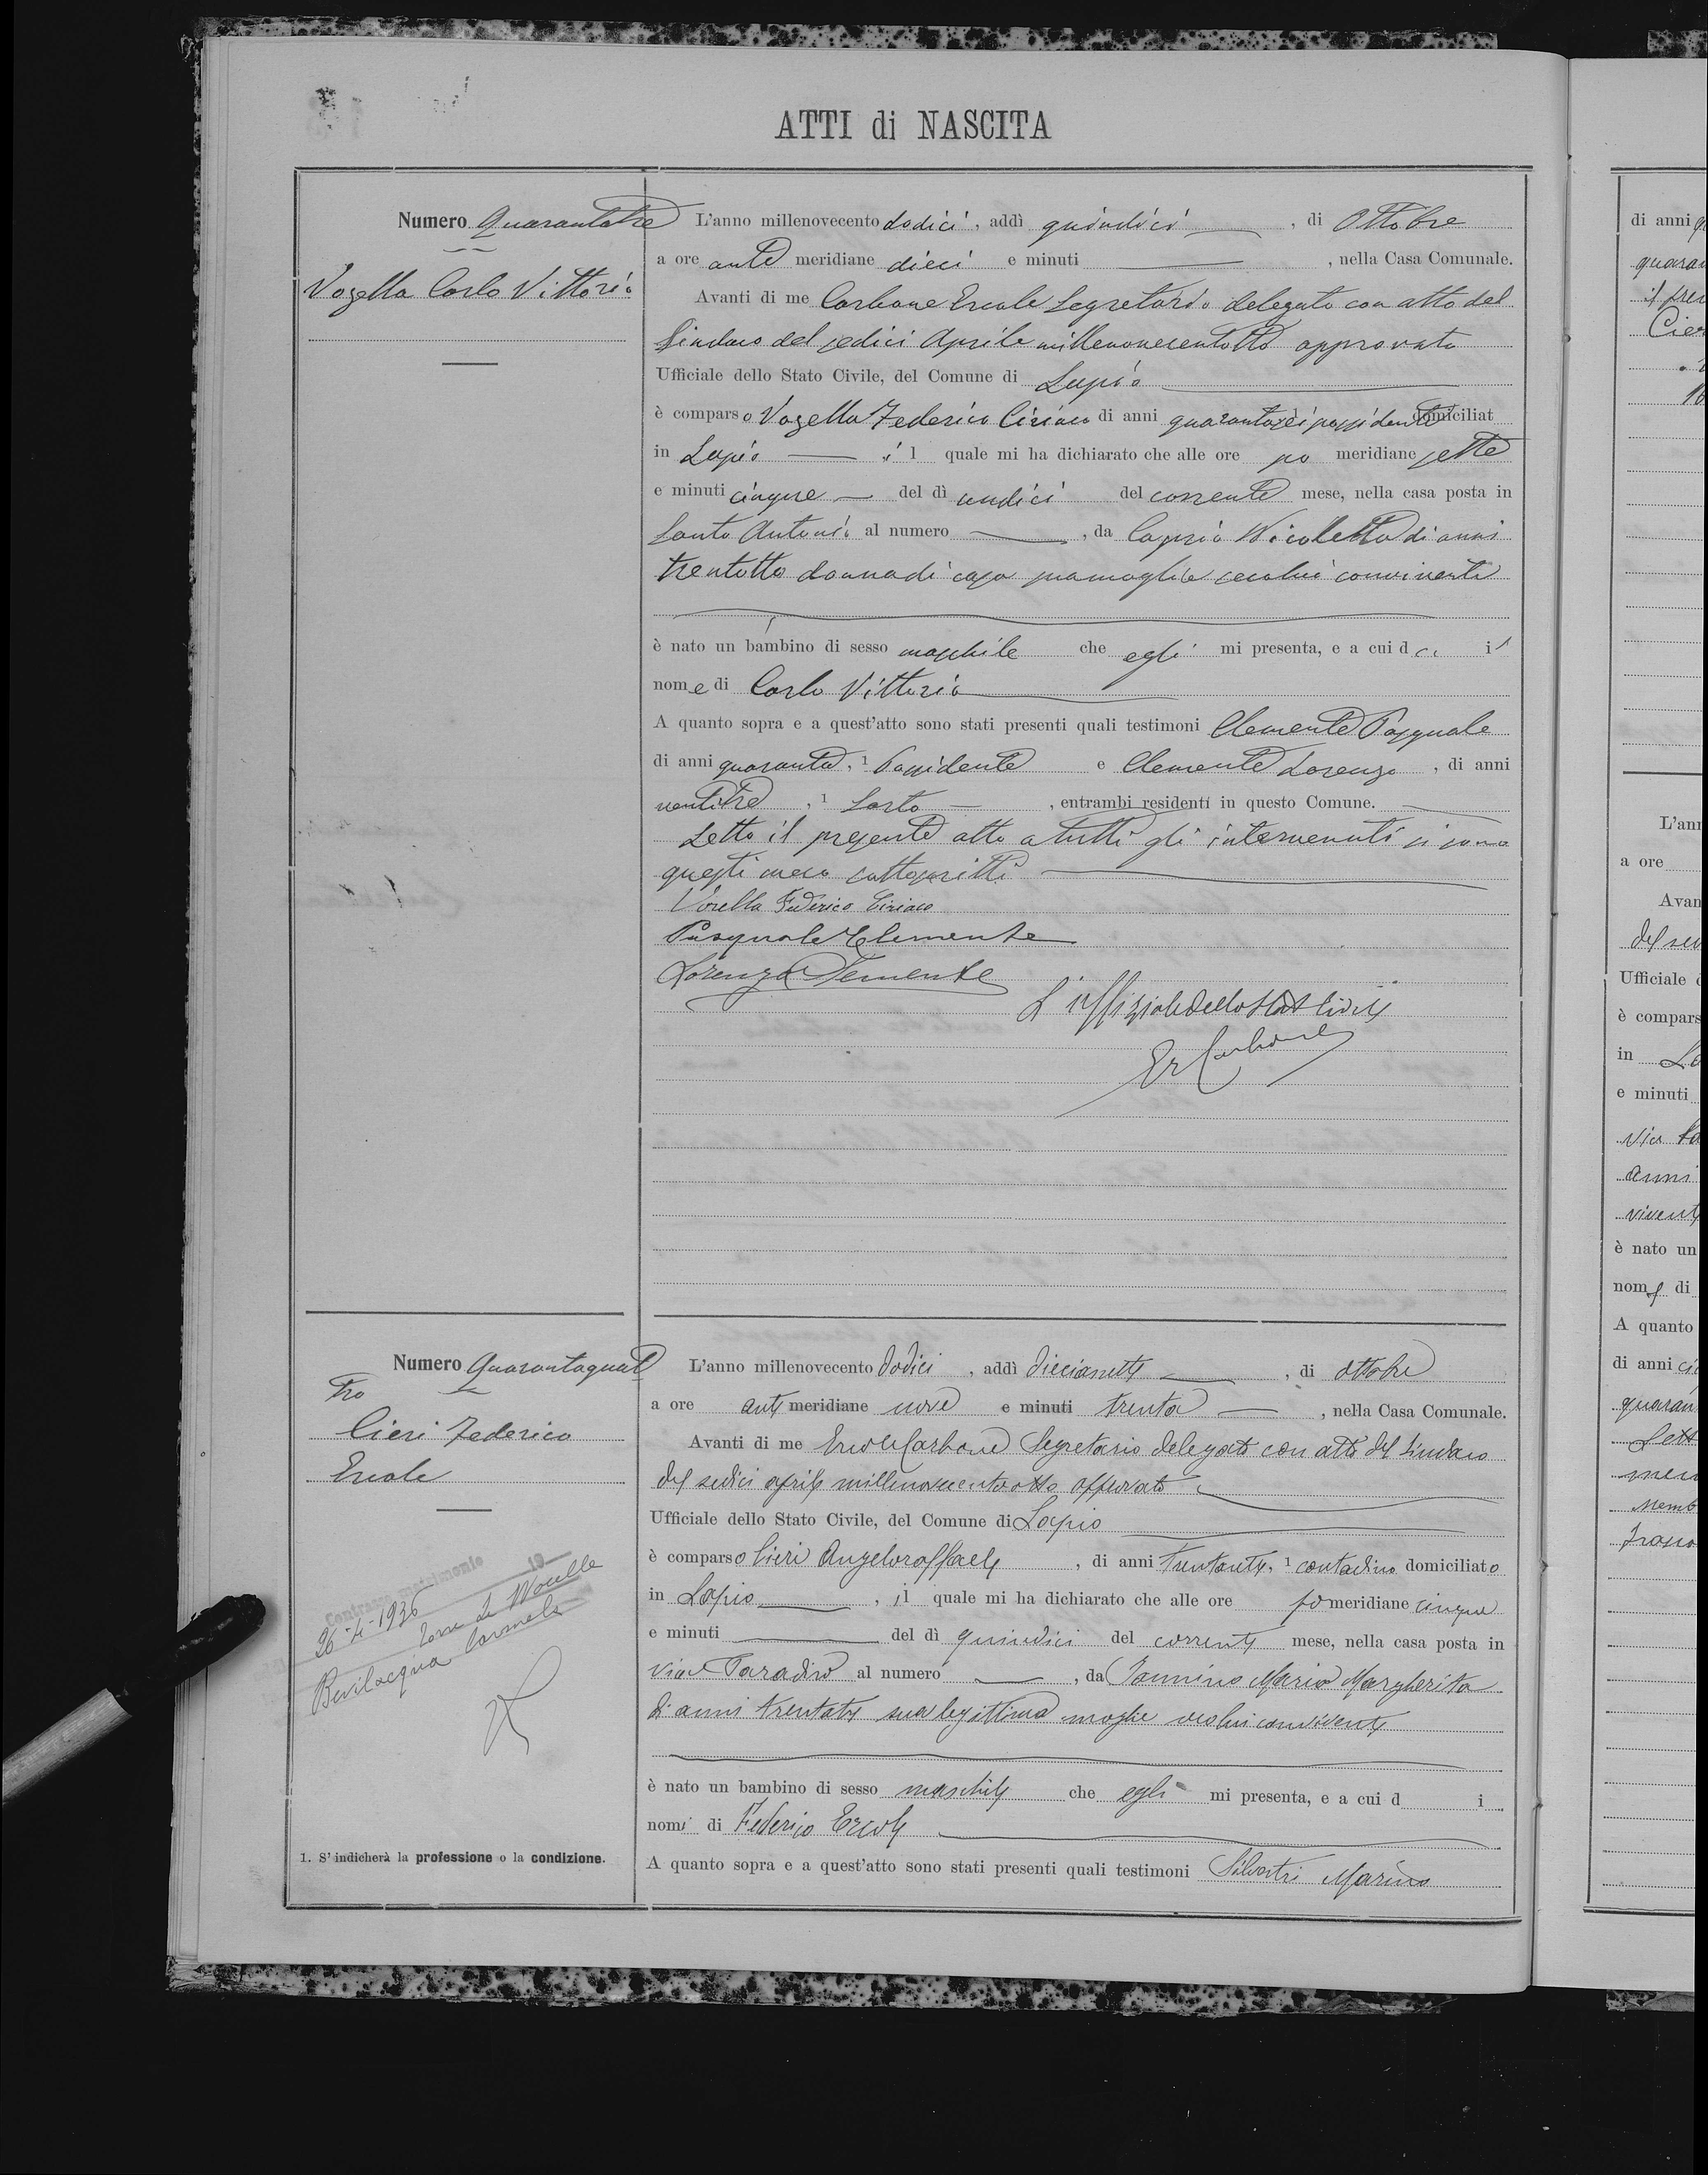 ATTI di NASCITA
Numero Quarantatre
Vozella Carlo Vittorio
L'anno millenovecento dodici, addì quindici, di Ottobre
a ore ante meridiane dieci e minuti , nella Casa Comunale.
Avanti di me Carbone Ercole Segretario delegato con atto del
Sindaco del sedici Aprile millenovecentotto approvato
Ufficiale dello Stato Civile, del Comune di Lapio
è comparso Vozella Federico Ciriaco di anni quarantasei possidente domiciliat
in Lapio il quale mi ha dichiarato che alle ore po meridiane sette
e minuti cinque del dì undici del corrente mese, nella casa posta in
Santo Antonio al numero , da Caprio Nicoletta di anni
trentotto donna di casa sua moglie seco lui convivente
è nato un bambino di sesso maschile che egli mi presenta, e a cui dà il
nome di Carlo Vittorio
A quanto sopra e a quest'atto sono stati presenti quali testimoni Clemente Pasquale
di anni quaranta, 1 Possidente e Clemente Lorenzo, di anni
ventitre, 1 Sarto , entrambi residenti in questo Comune.
Letto il presente atto a tutti gli intervenuti si sono
questi meco sottoscritti
Vozella Federico Ciriaco
Pasquale Clemente
Lorenzo Clemente
L'uffiziale dello Stato Civile
Er Carbone
Numero Quarantaquat
tro
Cieri Federico
Ercole
26-4-1936
Bevilacqua Carmela
L'anno millenovecento dodici, addì diecianette, di ottobre
a ore ante meridiane nove e minuti trenta , nella Casa Comunale.
Avanti di me Ercole Carbone Segretario delegato con atto del Sindaco
del sedici aprile millenovecentootto approvato
Ufficiale dello Stato Civile, del Comune di Lapio
è comparso Cieri Angeloraffaele, di anni , 1 contadino domiciliato
in Lapio , il quale mi ha dichiarato che alle ore po meridiane cinque
e minuti del dì quindici del corrente mese, nella casa posta in
via Paradiso al numero , da Iannino Maria Margherita
di anni trentatre sua legittima moglie seco lui convivente
è nato un bambino di sesso maschile che egli mi presenta, e a cui d i
nomi di Federico Ercole
A quanto sopra e a quest'atto sono stati presenti quali testimoni Silvestri Marino
1. S'indicherà la professione o la condizione.
di anni
quaran
Cier
L'ann
a ore
Avan
del sed
Ufficiale d
è compars
in La
e minuti
via
anni
vivente
è nato un
nome di
A quanto
di anni
quaran
Lett